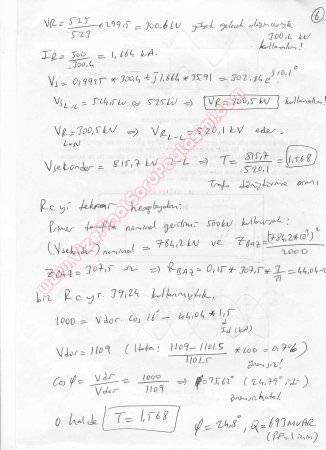 6
VR = 525/523 * 299.5 = 300.6 kV
300.4 kV
kullanalım!
IR = 500/300.4 = 1,664 kA.
VS = 0,9955 * 300.4 + j1.664 * 35.91 = 302.86 e^j10.1°
VS L-L = 524.5 kV ≈ 525 kV ⇒ VR = 300,5 kV kullanalım!
VR L-N = 300,5 kV ⇒ VR L-L = 520,1 kV eder.
Vsekonder = 815,7 kV L-L ⇒ T = 815,7/520,1 = 1,568
Trafo dönüştürme oranı
Rc yi tekrar hesaplayalım:
Primer tarafta nominal gerilimi 500kV bulursak:
(Vsekonder) nominal = 784,2 kV ve ZBAZ = (784,2*10³)²/2000
ZBAZ = 307,5 Ω ⇒ RBAZ = 0,15 * 307,5 * 3/π = 44.04 Ω
biz Rc yi 39,24 kullanmıştık.
1000 = Vdor. Cos 16° - 44.04 * 1,5
Id (kA)
Vdor = 1109 (Hata: 1109-1101.5/1101.5 * 100 = 0.7%)
önemsiz!
Cos φ = Vdr/Vdor = 1000/1109 ⇒ φ = 25,62° (24,79° idi)
O halde T = 1,568 φ = 24.8°, Q = 693 MVAR